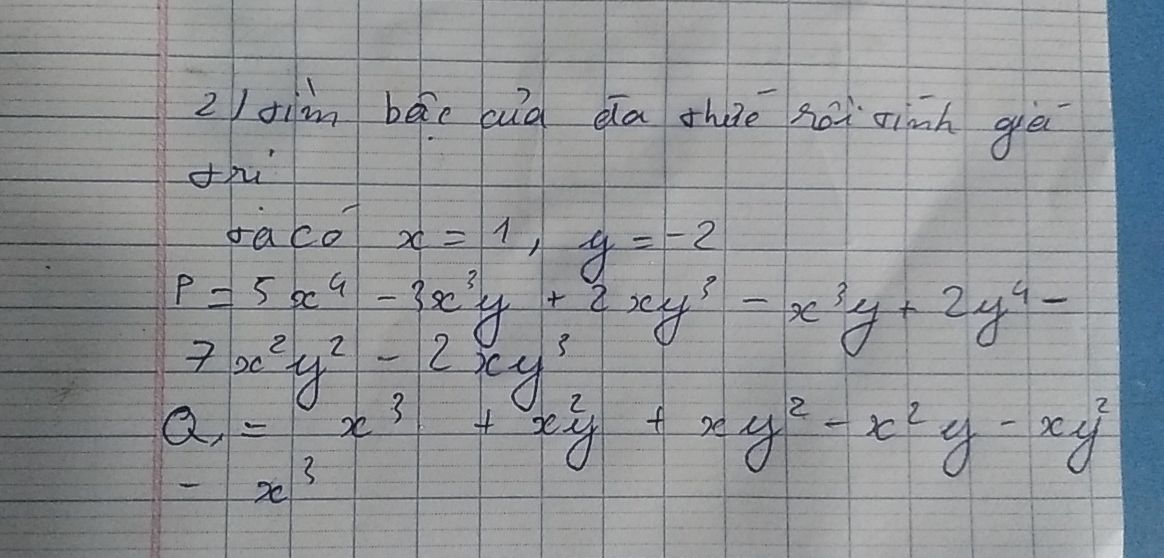 2) tìm bậc của đa thức rồi tính giá
trị
ta có x = 1, y = -2
P = 5x⁴ - 3x³y + 2xy³ - x³y + 2y⁴ -
7x²y² - 2xy³
Q = x³ + x²y + xy² - x²y - xy²
- x³